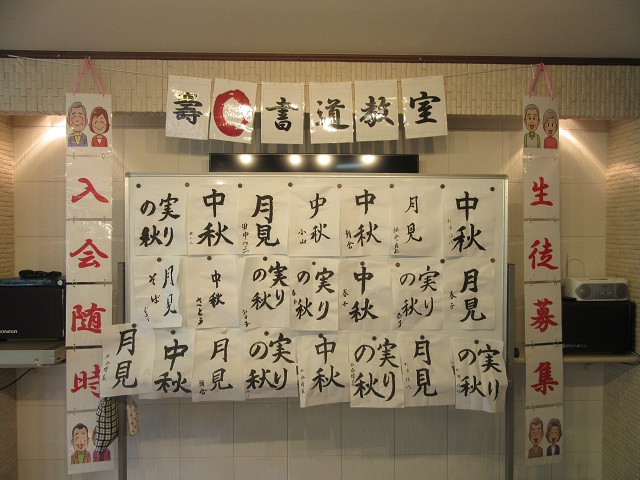 壽〇書道教室
入会随時
生徒募集
実り
の秋
中秋
月見
中秋
小山
中秋
月見
中秋
月見
そば
中秋
実り
の秋
実り
の秋
中秋
実り
の秋
月見
春子
月見
中秋
月見
実り
の秋
中秋
実り
の秋
月見
実り
の秋